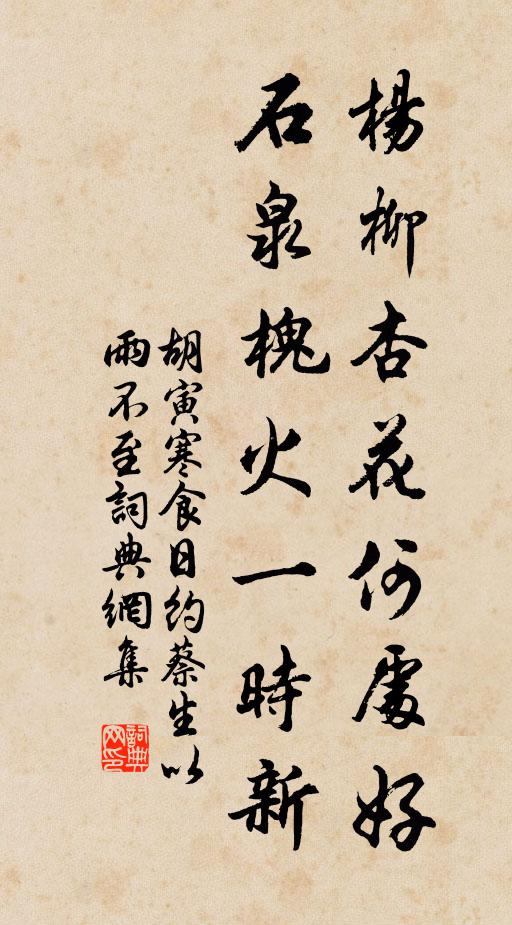 楊柳杏花何處好
石泉槐火一時新
胡寅寒食日約蔡生以
雨不至詞典網集
詞典网印